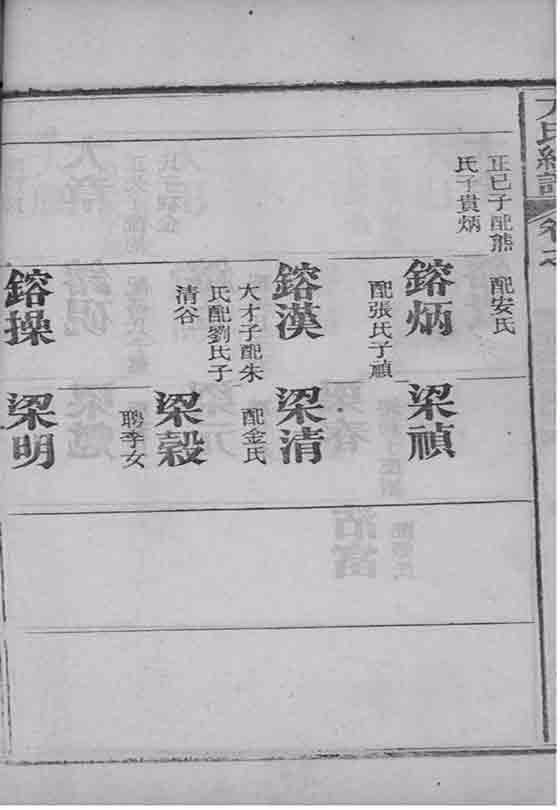 卷之
正已子配熊
氏子貴炳
配安氏
鎔炳
配張氏子禎
鎔漢
大才子配朱
氏配劉氏子
清谷
鎔操
梁禎
梁清
配金氏
梁榖
聘李女
梁明